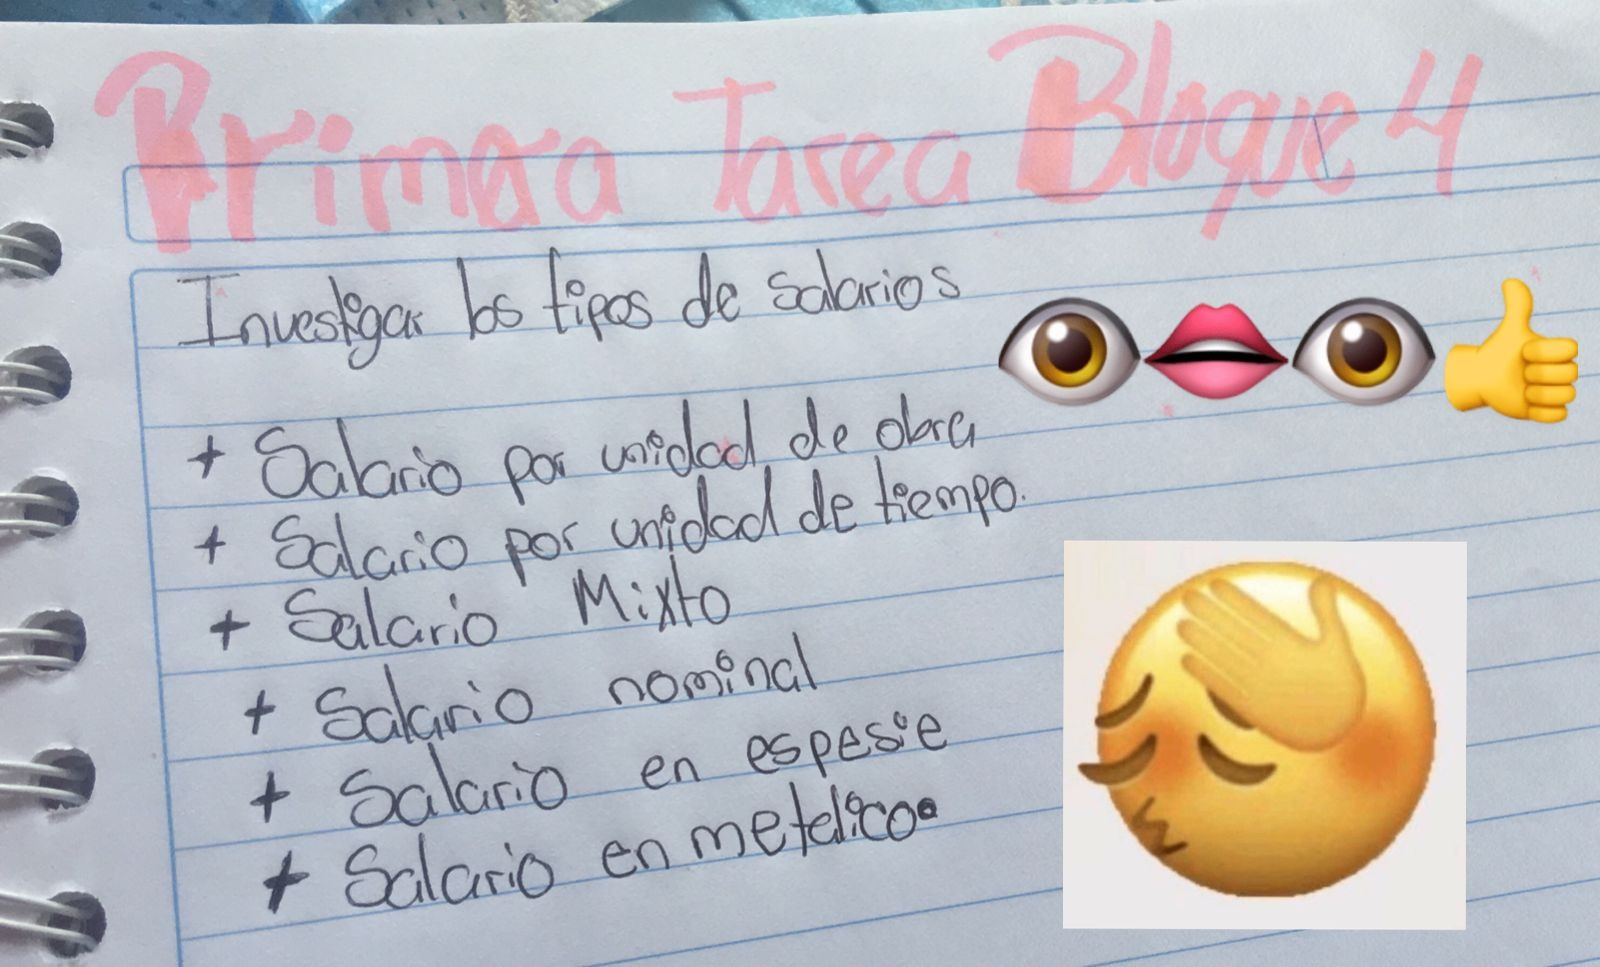 Primera Tarea Bloque 4
Investigar los tipos de salarios
+ Salario por unidad de obra
+ Salario por unidad de tiempo.
+ Salario Mixto
+ Salario nominal
+ Salario en espesie
+ Salario en metalico.